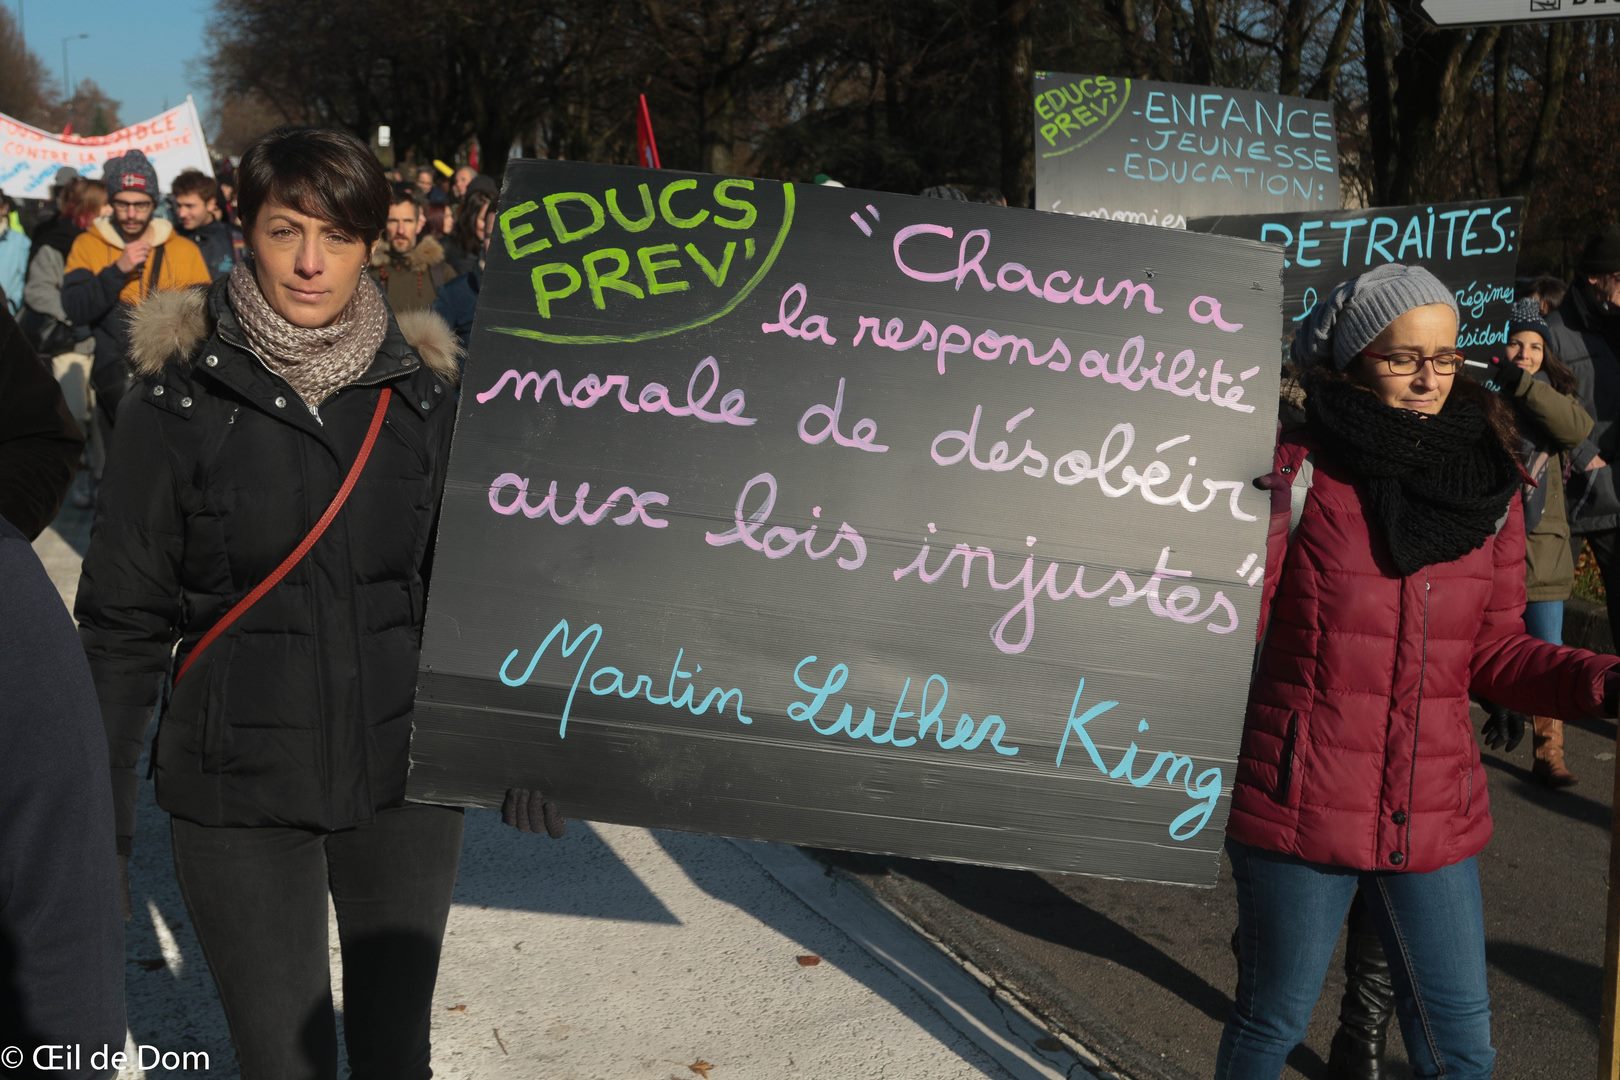 CONTRE LA PRÉCARITÉ
EDUCS
PREV'
- ENFANCE
- JEUNESSE
- EDUCATION:
économies
RETRAITES:
régimes
EDUCS
PREV'
"Chacun a
la responsabilité
morale de désobéir
aux lois injustes"
Martin Luther King
© Œil de Dom